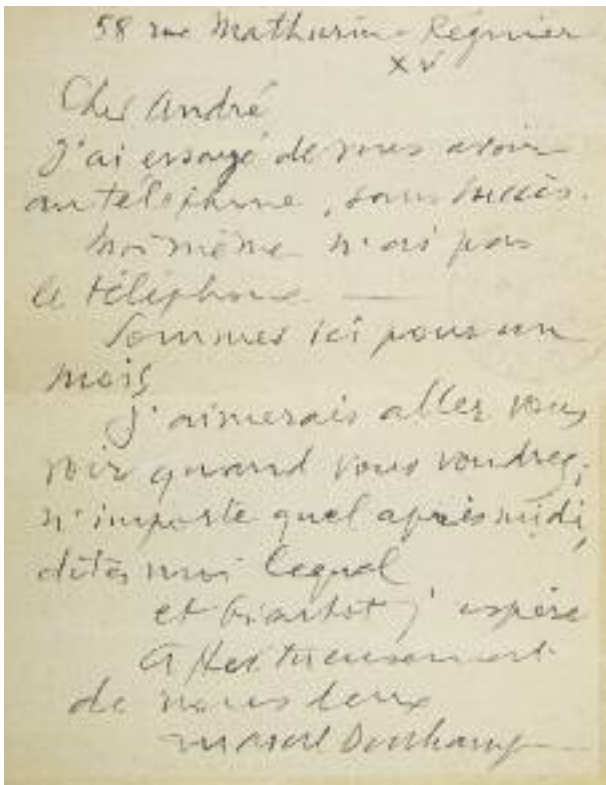 58 rue Mathurin-Régnier
XV
Cher André
J'ai essayé de vous avoir
au téléphone, sans succès.
Moi même n'ai pas
le téléphone —
Sommes ici pour un
mois
J'aimerais aller vous
voir quand vous voudrez,
n'importe quel après midi,
dites moi lequel
et à bientôt j'espère
Affectueusement
de nous deux
Marcel Duchamp